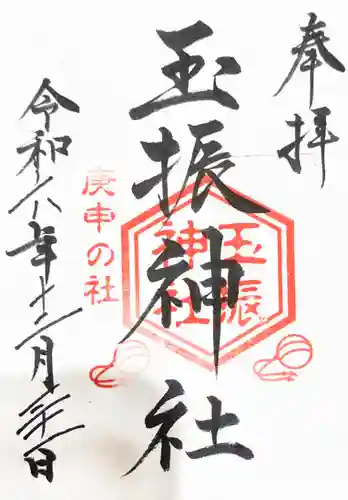 奉拝
玉振神社
玉振
神社
庚申の社
令和六年十二月三十一日